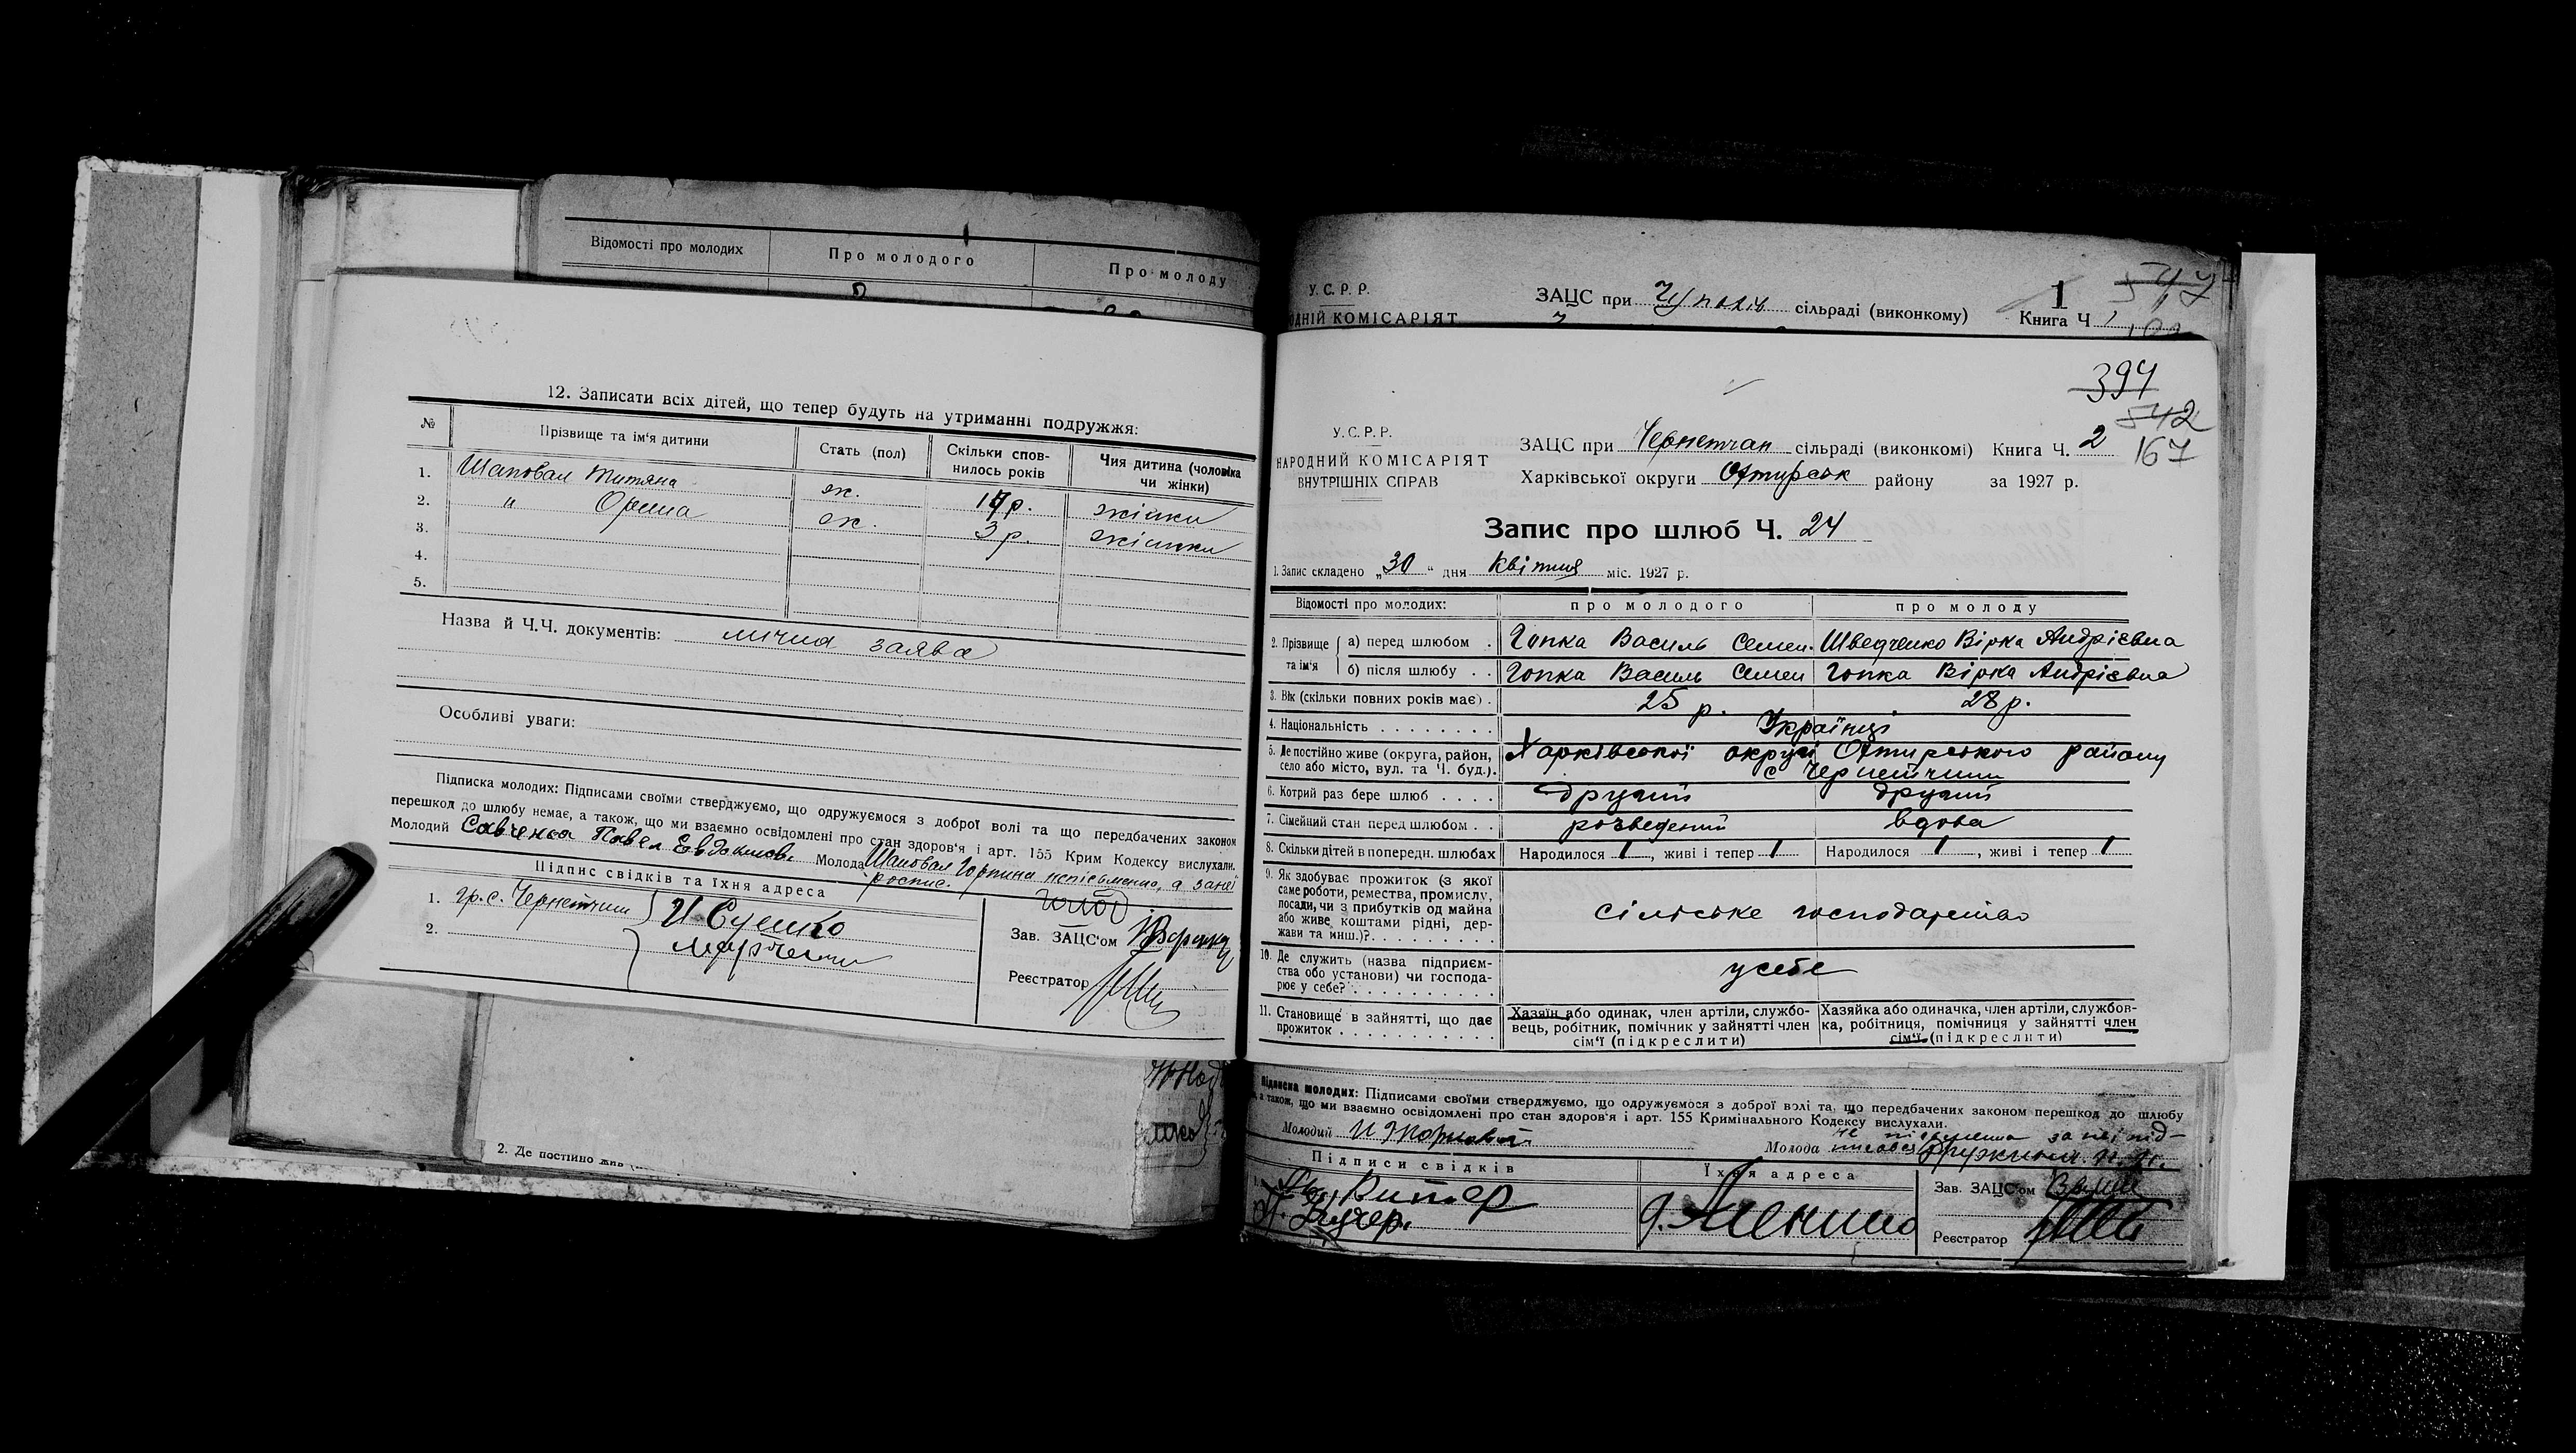 Відомості про молодих
Про молодого
Про молоду
12. Записати всіх дітей, що тепер будуть на утриманні подружжя:
№ Прізвище та ім'я дитини Стать (пол) Скільки спов-нилось років Чия дитина (чоловіка чи жінки)
1. Шаповал Титяна ж. 17 р. жінки
2. " Орина ж. 3 р. жінки
3.
4.
5.
Назва й Ч.Ч. документів: лічна заява
Особливі уваги:
Підписка молодих: Підписами своїми стверджуємо, що одружуємося з доброї волі та що передбачених законом
перешкод до шлюбу немає, а також, що ми взаємно освідомлені про стан здоров'я і арт. 155 Крим Кодексу вислухали.
Молодий Савченко Павел Евдоким. Молода Шаповал Горпина
Підпис свідків та їхня адреса
1. гр. с. Чернетчин
2.
Зав. ЗАЦС'ом
Реєстратор
2. Де постійно жив
У.С.Р.Р.
ЗАЦС при сільраді (виконкому)
1
547
НІЙ КОМІСАРІЯТ
Книга Ч 1
394
542
167
У.С.Р.Р.
НАРОДНИЙ КОМІСАРІЯТ
ВНУТРІШНІХ СПРАВ
ЗАЦС при Чернетчан сільраді (виконкомі) Книга Ч. 2
Харківської округи Охтирськ району за 1927 р.
Запис про шлюб Ч. 24
1. Запис складено „30" дня Квітня міс. 1927 р.
Відомості про молодих: про молодого про молоду
2. Прізвище та ім'я а) перед шлюбом . Гопка Василь Семен. Шведченко Вірка Андрієвна
б) після шлюбу . . Гопка Василь Семен Гопка Вірка Андрієвна
3. Вік (скільки повних років має) . 25 р. 28 р.
4. Національність . . . . . . . . Українці
5. Де постійно живе (округа, район, Харківської округи Охтирського району
село або місто, вул. та Ч. буд.). с Чернетчини
6. Котрий раз бере шлюб . . . . другий другий
7. Сімейний стан перед шлюбом . . розведений вдова
8. Скільки дітей в попередн. шлюбах Народилося 1, живі і тепер 1 Народилося 1, живі і тепер 1
9. Як здобуває прожиток (з якої
саме роботи, ремества, промислу,
посади, чи з прибутків од майна
або живе коштами рідні, дер-
жави та инш.)?. . . . . . . . .
сільське господарство
10. Де служить (назва підприєм-
ства обо установи) чи господа-
рює у себе? . . . . . . . . . .
у себе
11. Становище в зайнятті, що дає
прожиток . . . . . . . . . .
Хазяїн або одинак, член артіли, службо-
вець, робітник, помічник у зайнятті член
сім'ї (підкреслити)
Хазяйка або одиначка, член артіли, службов-
ка, робітниця, помічниця у зайнятті член
сім'ї (підкреслити)
Підписка молодих: Підписами своїми стверджуємо, що одружуємося з доброї волі та, що передбачених законом перешкод до шлюбу
а також, що ми взаємно освідомлені про стан здоров'я і арт. 155 Кримінального Кодексу вислухали.
Молодий
Молода
Підписи свідків
Їхня адреса
Зав. ЗАЦС'ом
Реєстратор